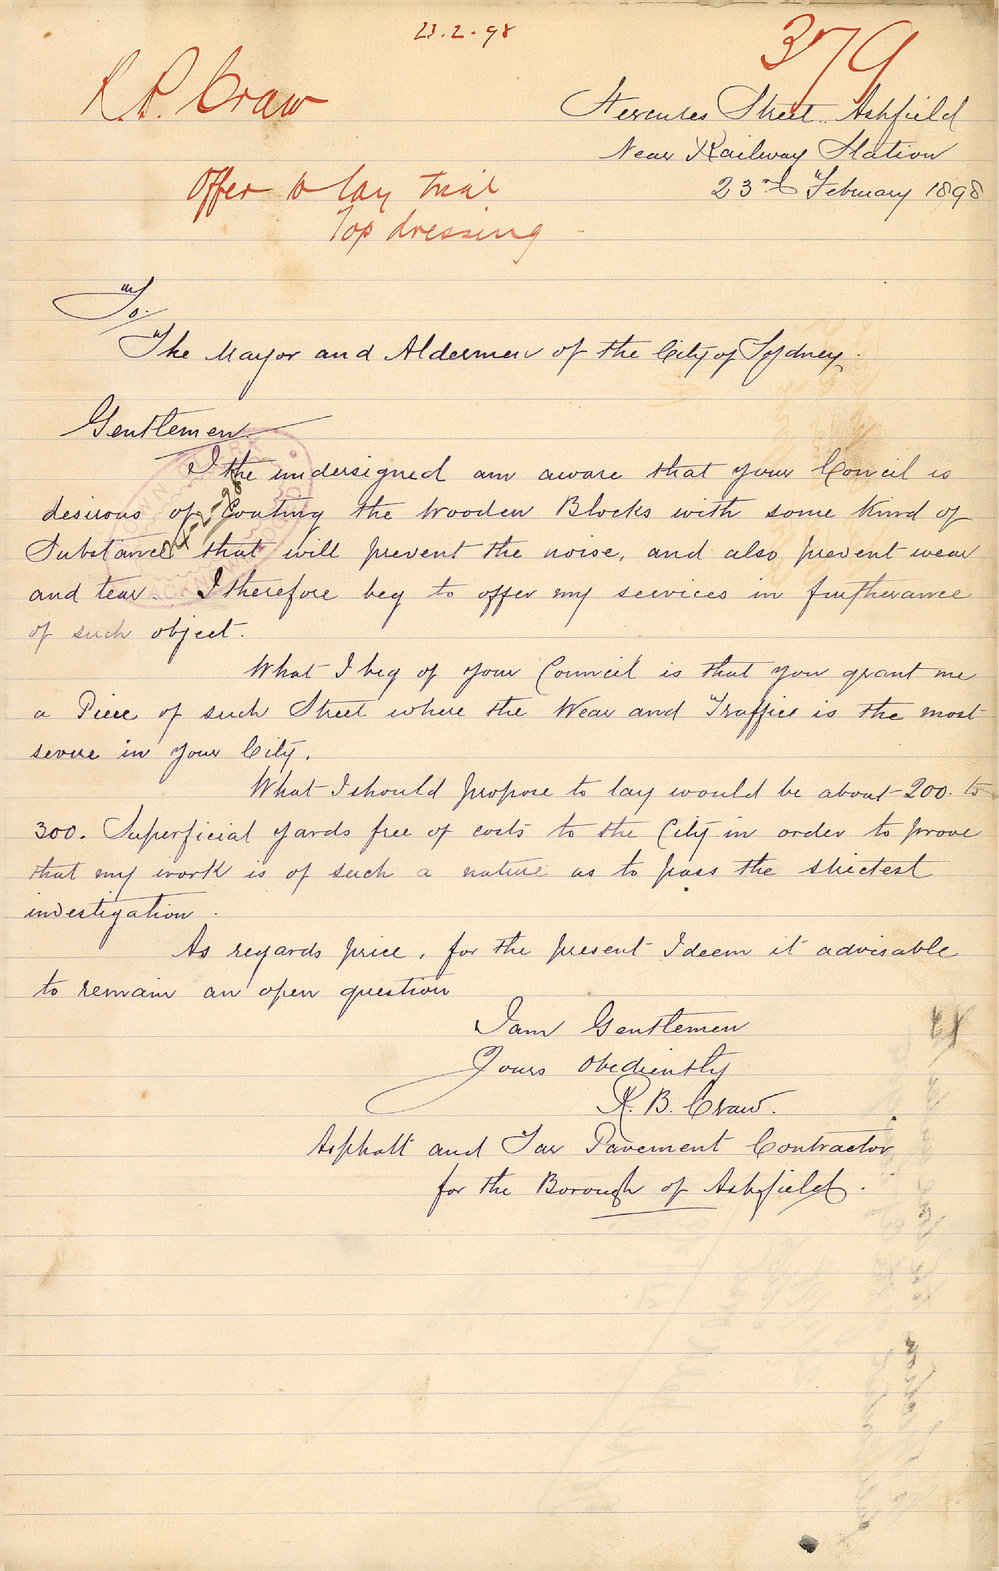 23.2.98
379
R.B. Craw
Hercules Street. Ashfield
Near Railway Station
23rd February 1898
Offer to lay trial
Top dressing
To.
The Mayor and Aldermen of the City of Sydney.
Gentlemen.
I the undersigned am aware that your Council is
desirous of Coating the Wooden Blocks with some Kind of
Substance that will prevent the noise, and also prevent wear
and tear I therefore beg to offer my services in furtherance
of such object.
What I beg of your Council is that you grant me
a Piece of such Street where the Wear and Traffic is the most
severe in your City.
What I should propose to lay would be about 200 to
300. Superficial yards free of costs to the City in order to prove
that my work is of such a nature as to pass the strictest
investigation.
As regards price, for the present I deem it advisable
to remain an open question
I am Gentlemen
Yours Obediently
R. B. Craw.
Asphalt and Tar Pavement Contractor
for the Borough of Ashfield.